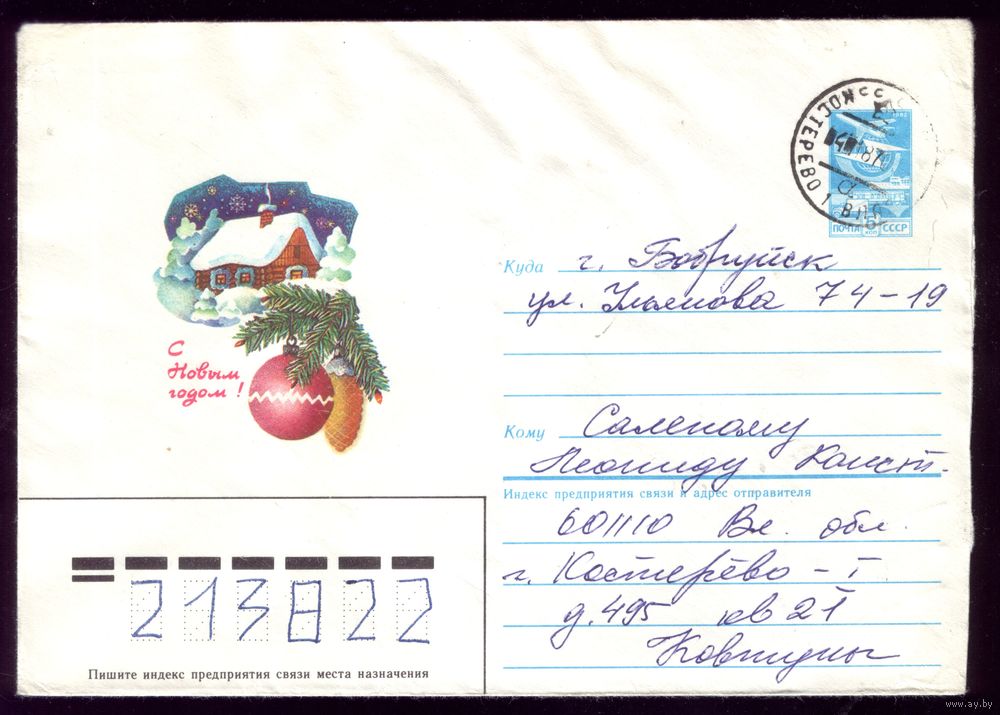 КОСТЕРЕВО 1 ВЛ
1982
87
ПОЧТА 5 КОП СССР
Куда г. Бобруйск
ул. Ульянова 74-19
С
Новым
годом!
Кому Саленому
Леониду Конст.
Индекс предприятия связи и адрес отправителя
601110 Вл. обл.
г. Костерёво - 1
д. 495 кв 21
Ковтуны
213822
Пишите индекс предприятия связи места назначения
www.ay.by